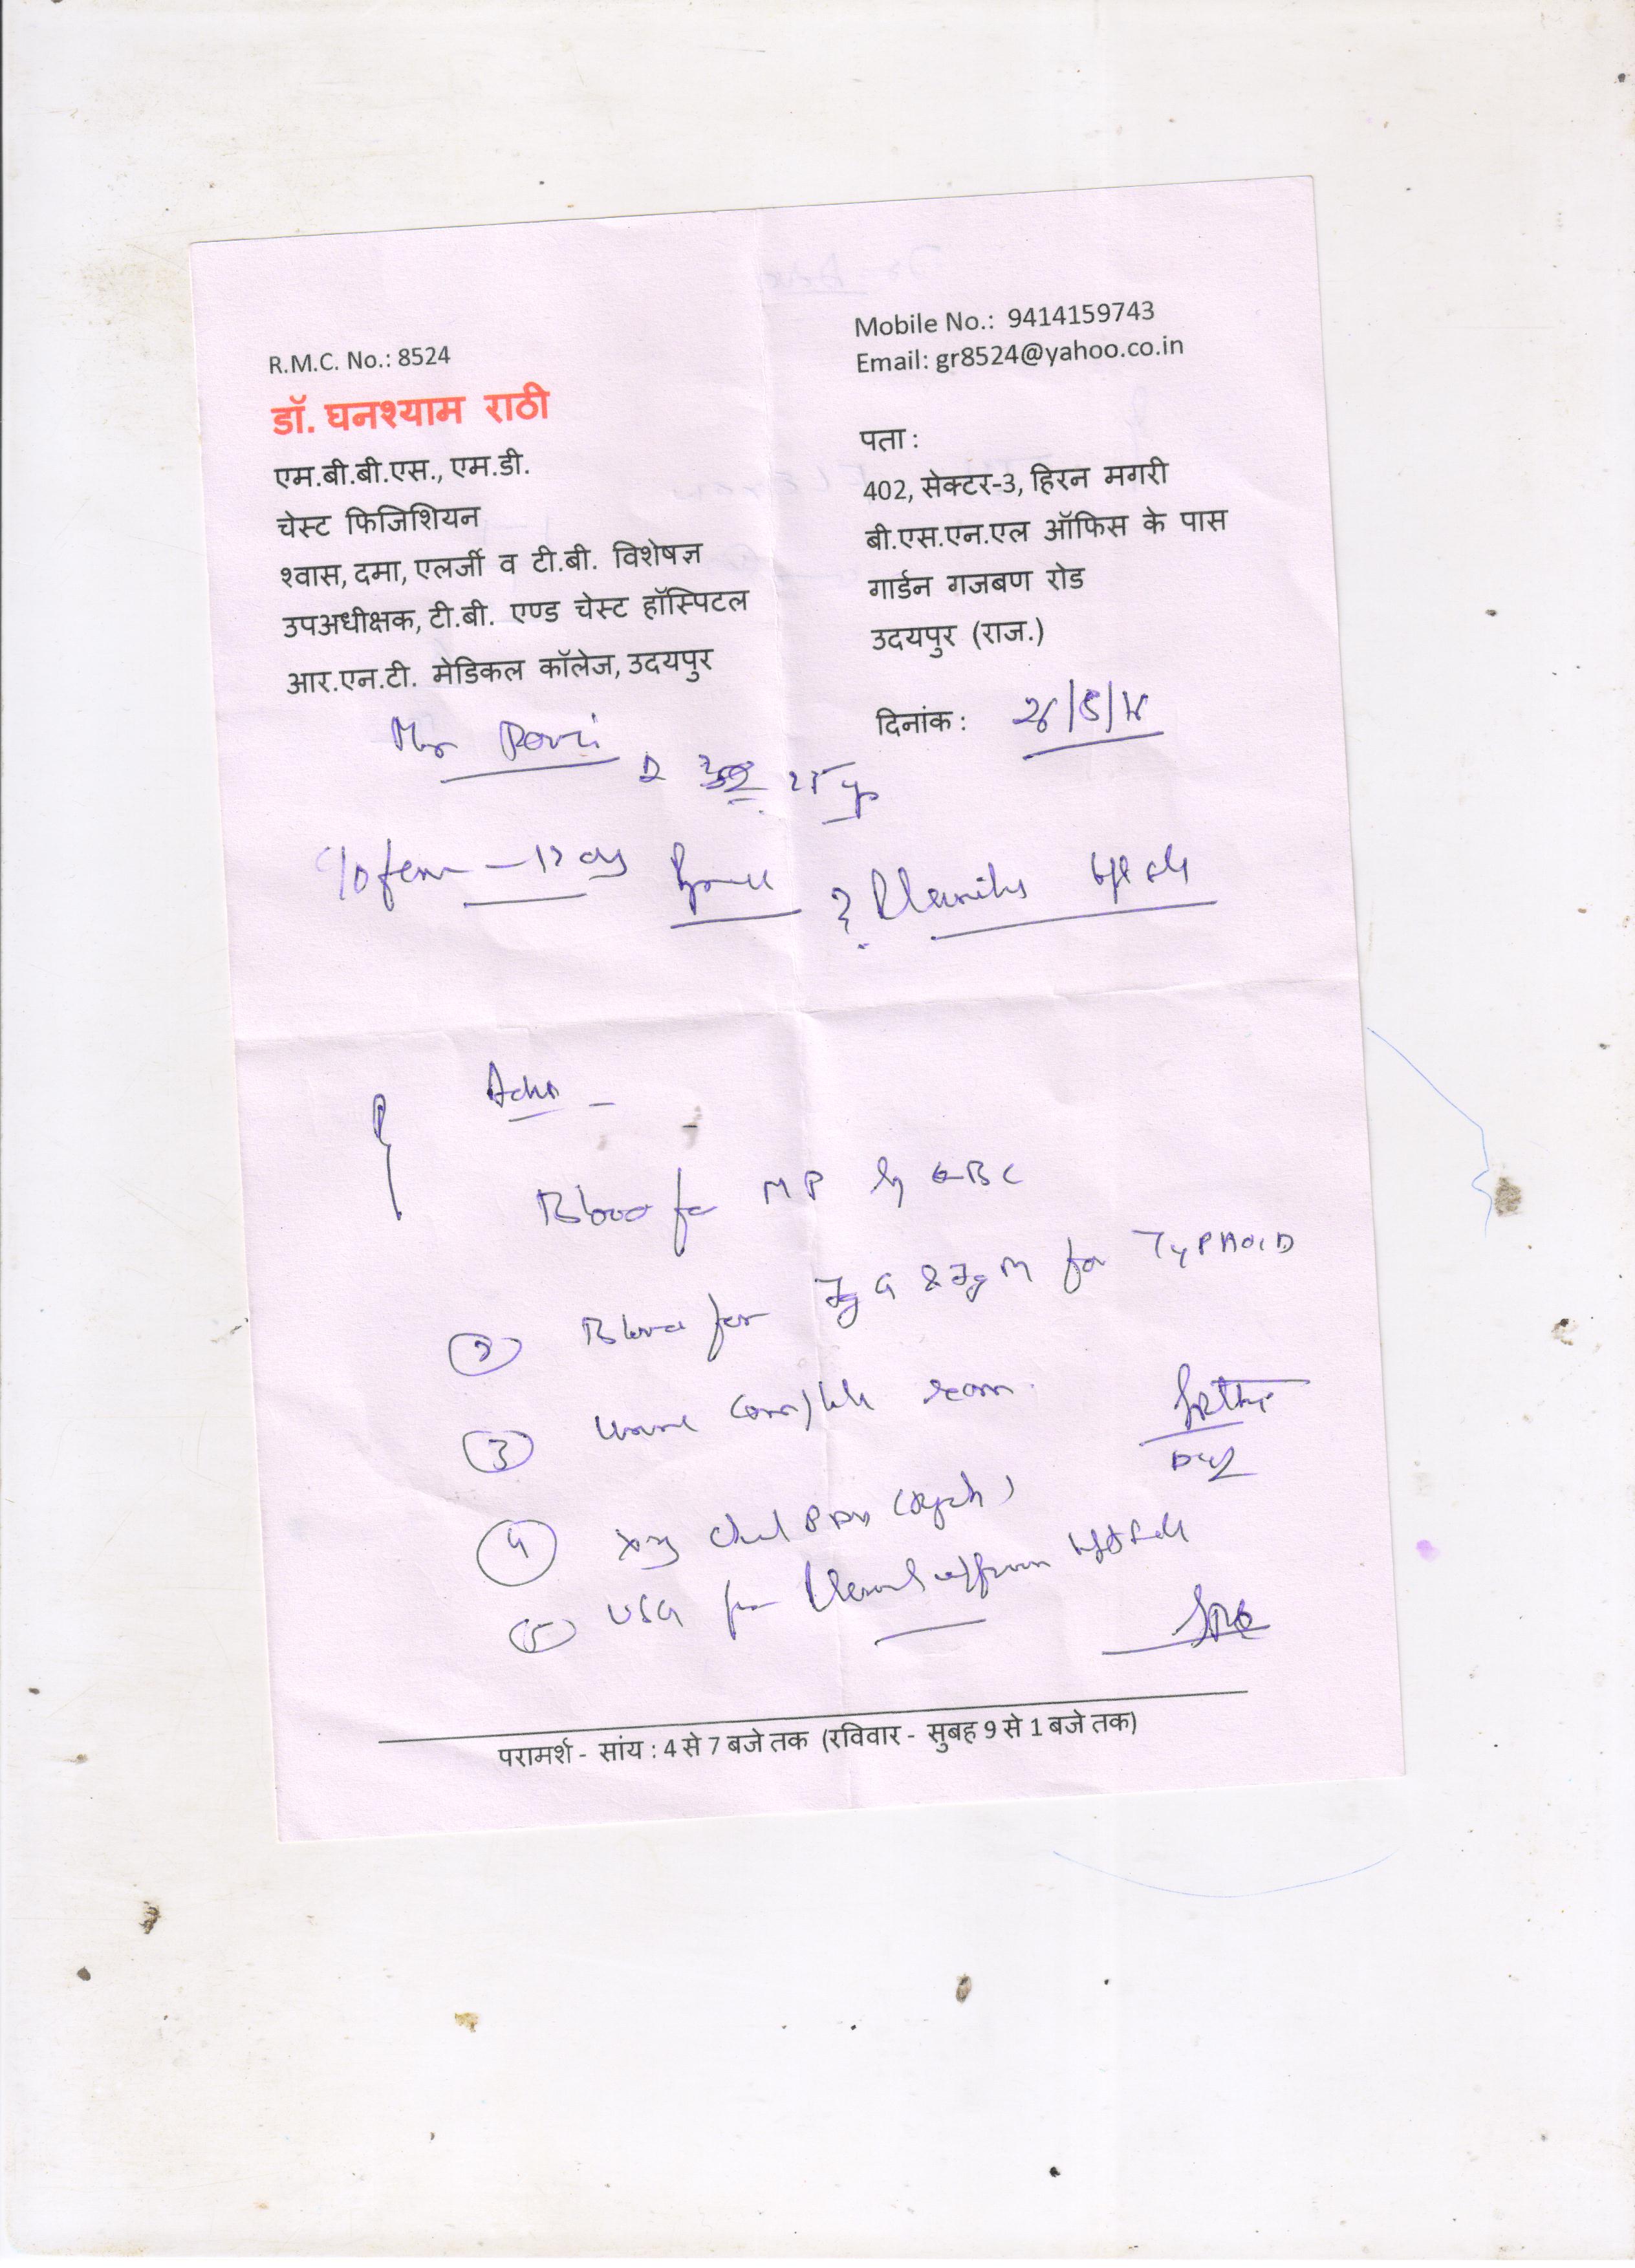 R.M.C. No.: 8524
डॉ. घनश्याम राठी
एम.बी.बी.एस., एम.डी.
चेस्ट फिजिशियन
श्वास, दमा, एलर्जी व टी.बी. विशेषज्ञ
उपअधीक्षक, टी.बी. एण्ड चेस्ट हॉस्पिटल
आर.एन.टी. मेडिकल कॉलेज, उदयपुर
Mobile No.: 9414159743
Email: gr8524@yahoo.co.in
पता :
402, सेक्टर-3, हिरन मगरी
बी.एस.एन.एल ऑफिस के पास
गार्डन गजबण रोड
उदयपुर (राज.)
दिनांक :
Mr
C/o fever
Blood for MP by QBC
2 Blood for IgG & IgM for TYPHOID
3 Urine complete
4 Xray chest
5 USG for Pleural effusion
परामर्श - सांय : 4 से 7 बजे तक (रविवार - सुबह 9 से 1 बजे तक)